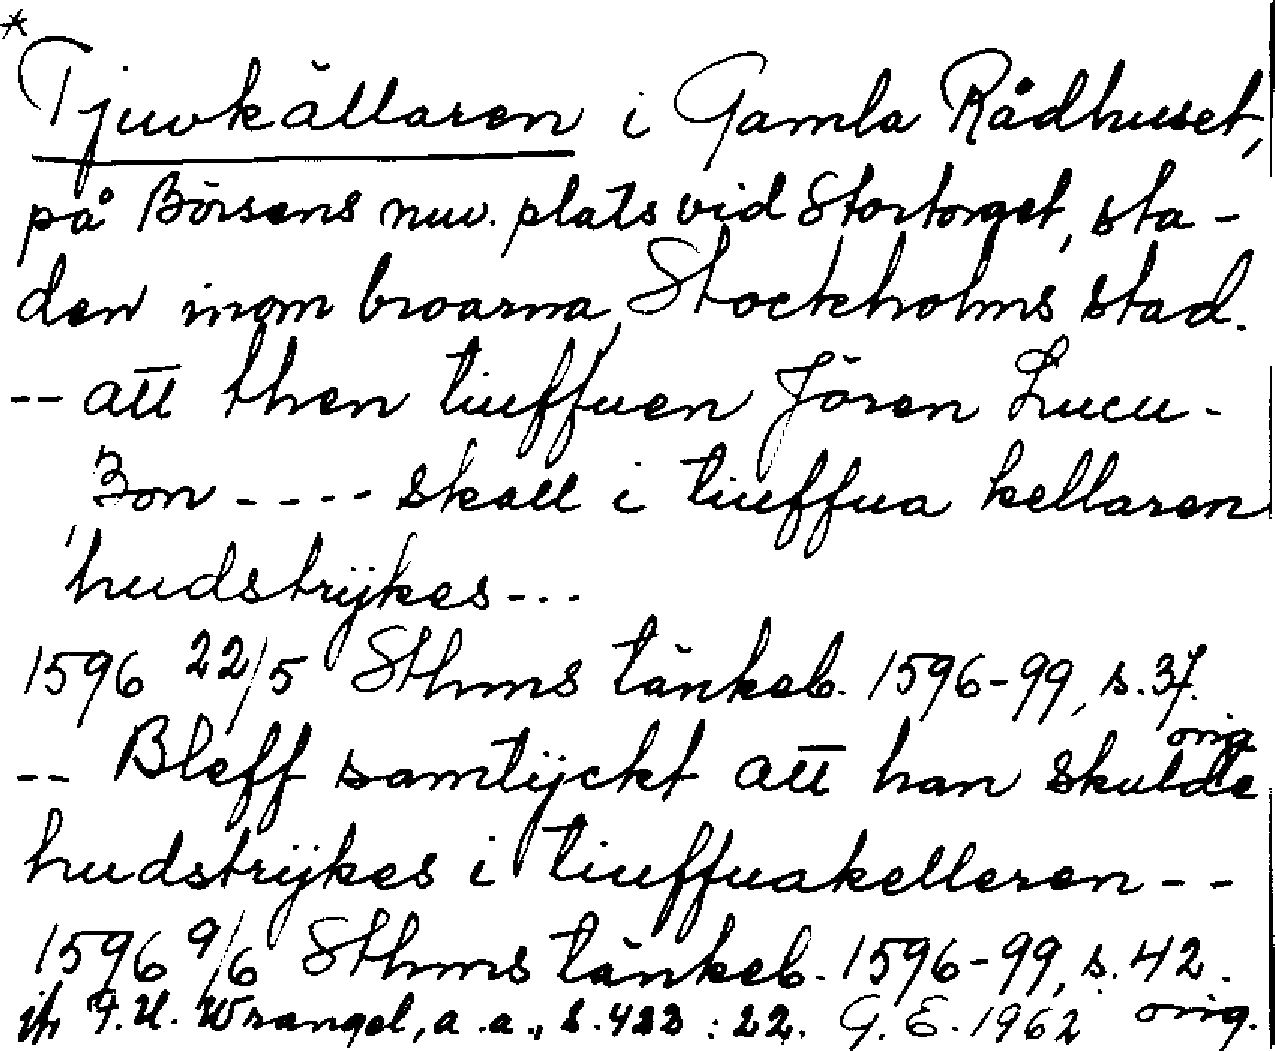 *
Tjuvkällaren i Gamla Rådhuset,
på Börsens nuv. plats vid Stortorget, sta-
den inom broarna, Stockholms stad.
-- att then tiuffuen Jören Lucu-
zon ---- skall i tiuffua kellaren
hudstrÿkes ---
1596 22/5 Sthms tänkeb. 1596-99, s. 37.
orig.
-- Bleff samtÿckt att han skulde
hudstrÿkes i tiuffuakelleren --
1596 9/6 Sthms tänkeb. 1596-99, s. 42.
orig.
jfr F.U. Wrangel, a.a., s. 423 : 22. G.E. 1962